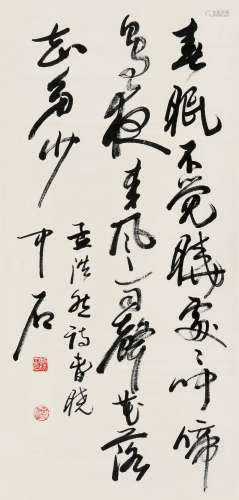 春眠不觉曉處〻闻啼
鸟夜来风雨聲花落
知多少
孟浩然诗春晓
中石